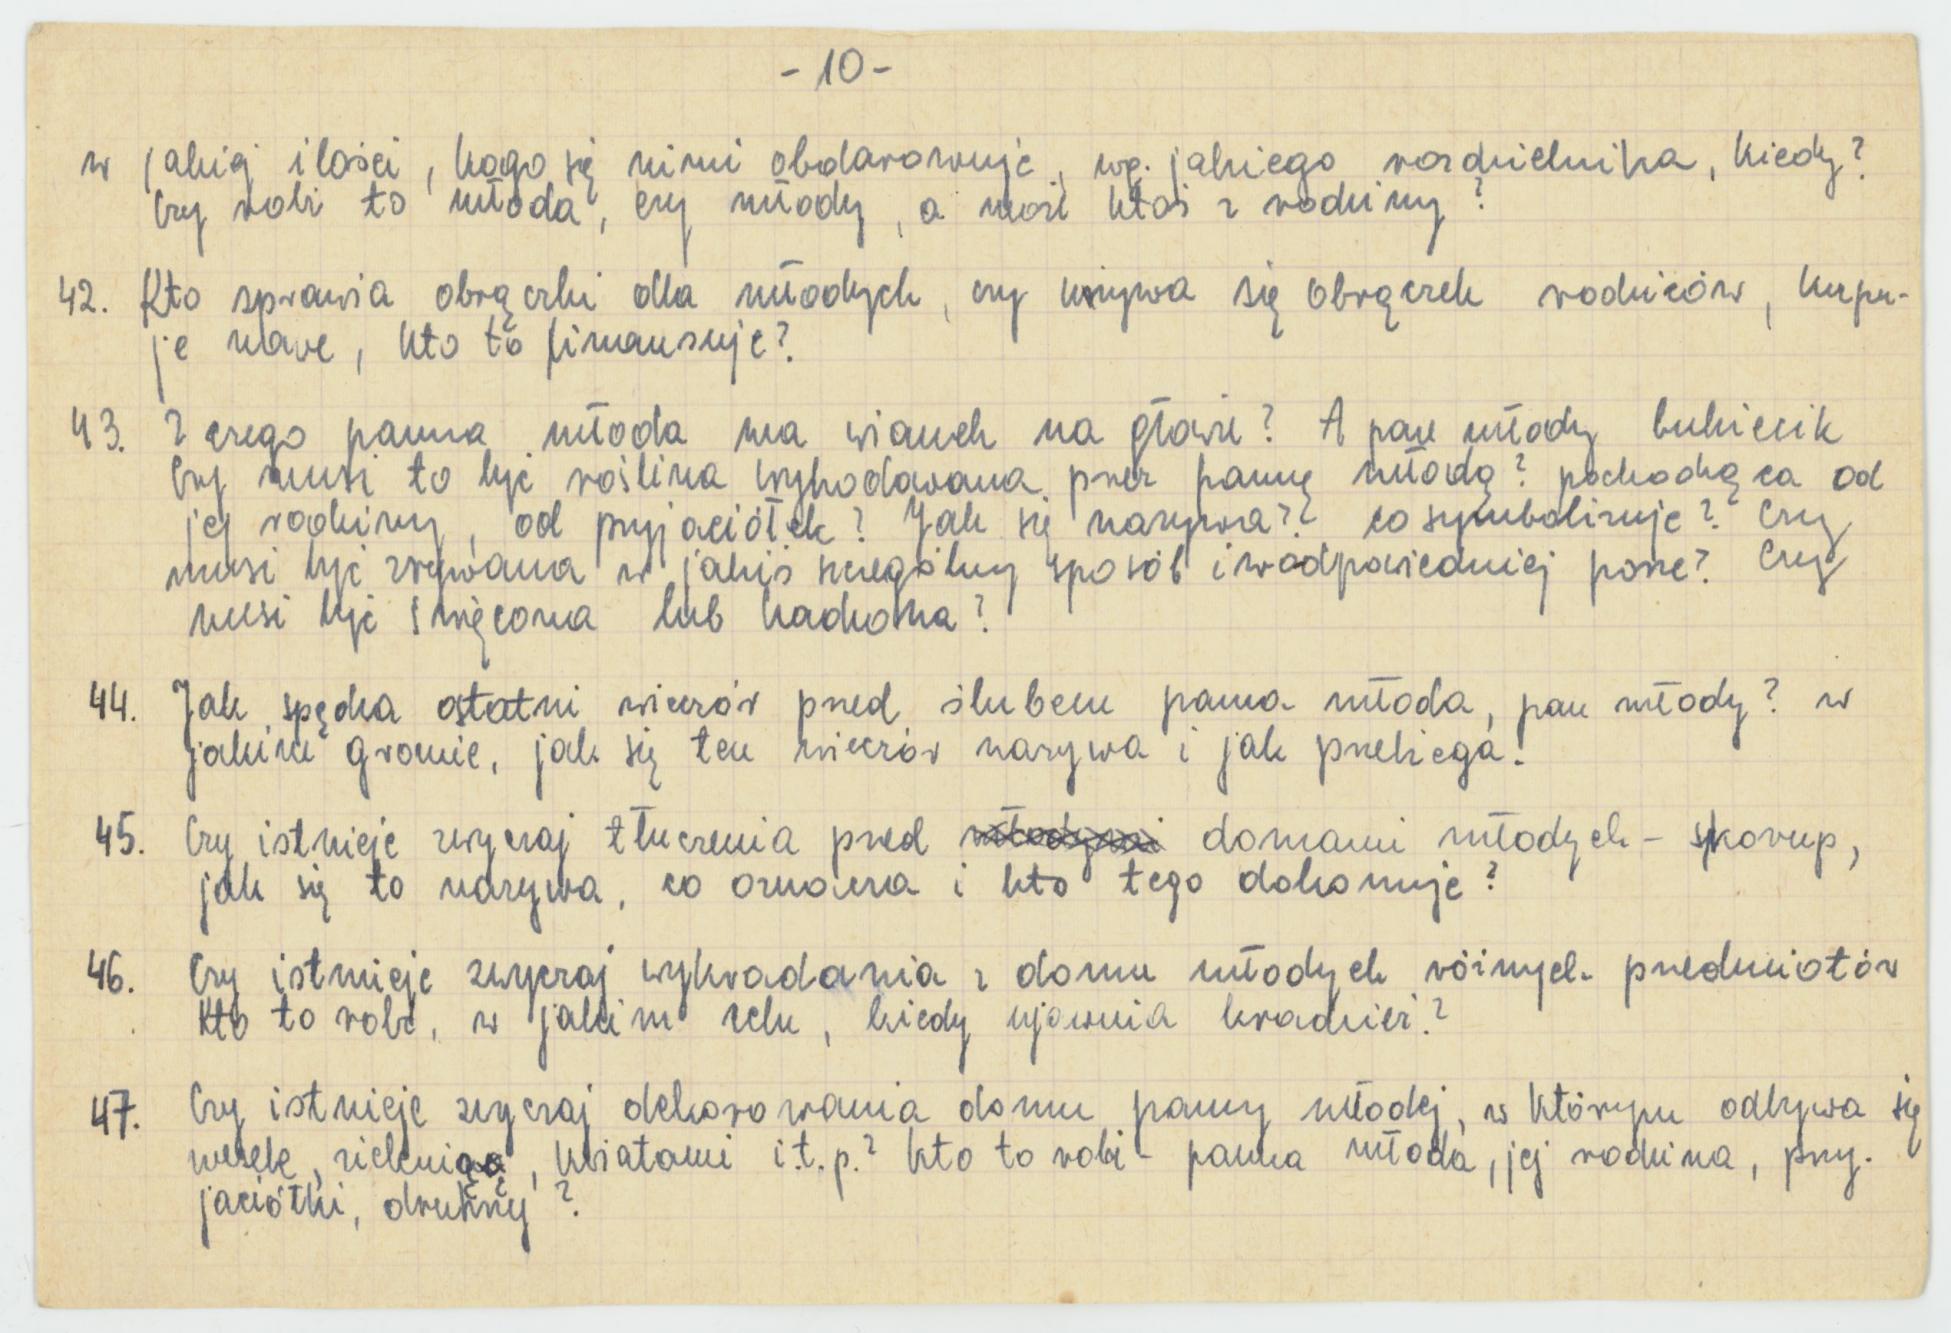 - 10 -
w jakiej ilości, kogo się nimi obdarowuje, wg. jakiego rozdzielnika, kiedy?
Czy robi to młoda, czy młody, a może ktoś z rodziny?
42. Kto sprawia obrączki dla młodych, czy używa się obrączek rodziców, kupu-
je nowe, kto to finansuje?
43. Z czego panna młoda ma wianek na głowie? A pan młody bukiecik
Czy musi to być roślina wyhodowana przez pannę młodą? pochodząca od
jej rodziny, od przyjaciółek? Jak się nazywa?? co symbolizuje? Czy
musi być zrywana w jakiś szczególny sposób i w odpowiedniej porze? Czy
musi być święcona lub kadzona?
44. Jak spędza ostatni wieczór przed ślubem panna młoda, pan młody? w
jakim gronie, jak się ten wieczór nazywa i jak przebiega.
45. Czy istnieje zwyczaj tłuczenia przed domami młodych - skorup,
jak się to nazywa, co oznacza i kto tego dokonuje?
46. Czy istnieje zwyczaj wykradania z domu młodych różnych przedmiotów
Kto to robi, w jakim celu, kiedy ujawnia kradzież?
47. Czy istnieje zwyczaj dekorowania domu panny młodej, w którym odbywa się
wesele, zielenią, kwiatami i.t.p.? Kto to robi - panna młoda, jej rodzina, przy-
jaciółki, drużny?